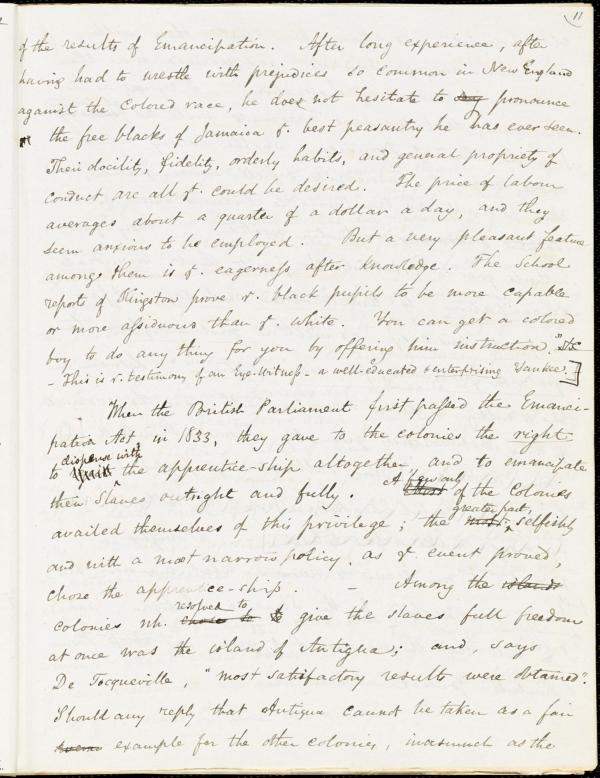 11
of the results of Emancipation. After long experience, after
having had to wrestle with prejudices so common in New England
against the Colored race, he does not hesitate to say pronounce
the free blacks of Jamaica yͤ. best peasantry he has ever seen.
Their docility, fidelity, orderly habits, and general propriety of
conduct are all yͭ. could be desired. The price of labour
averages about a quarter of a dollar a day, and they
seem anxious to be employed. But a very pleasant feature
among them is yͤ. eagerness after knowledge. The School
reports of Kingston prove yͤ. black pupils to be more capable
or more assiduous than yͤ. white. You can get a colored
boy to do any thing for you by offering him instruction."
– This is yͤ. testimony of an Eye-Witness – a well-educated & enterprising Yankee.–]
When the British Parliament first passed the Emanci-
pation Act, in 1833, they gave to the colonies the right
dispense with
to the apprentice-ship altogether, and to emancipate
A few only
their Slaves outright and fully. of the Colonies
greater part,
availed themselves of this privilege; the most selfishly
and with a most narrow policy, as yͤ. event proved,
chose the apprentice-ship. – Among the islands
resolved to
colonies wh. chose to give the slaves full freedom
at once was the island of Antigua; and, says
De Tocqueville, "most satisfactory results were obtained".
Should any reply that Antigua cannot be taken as a fair
example for the other colonies, inasmuch as the